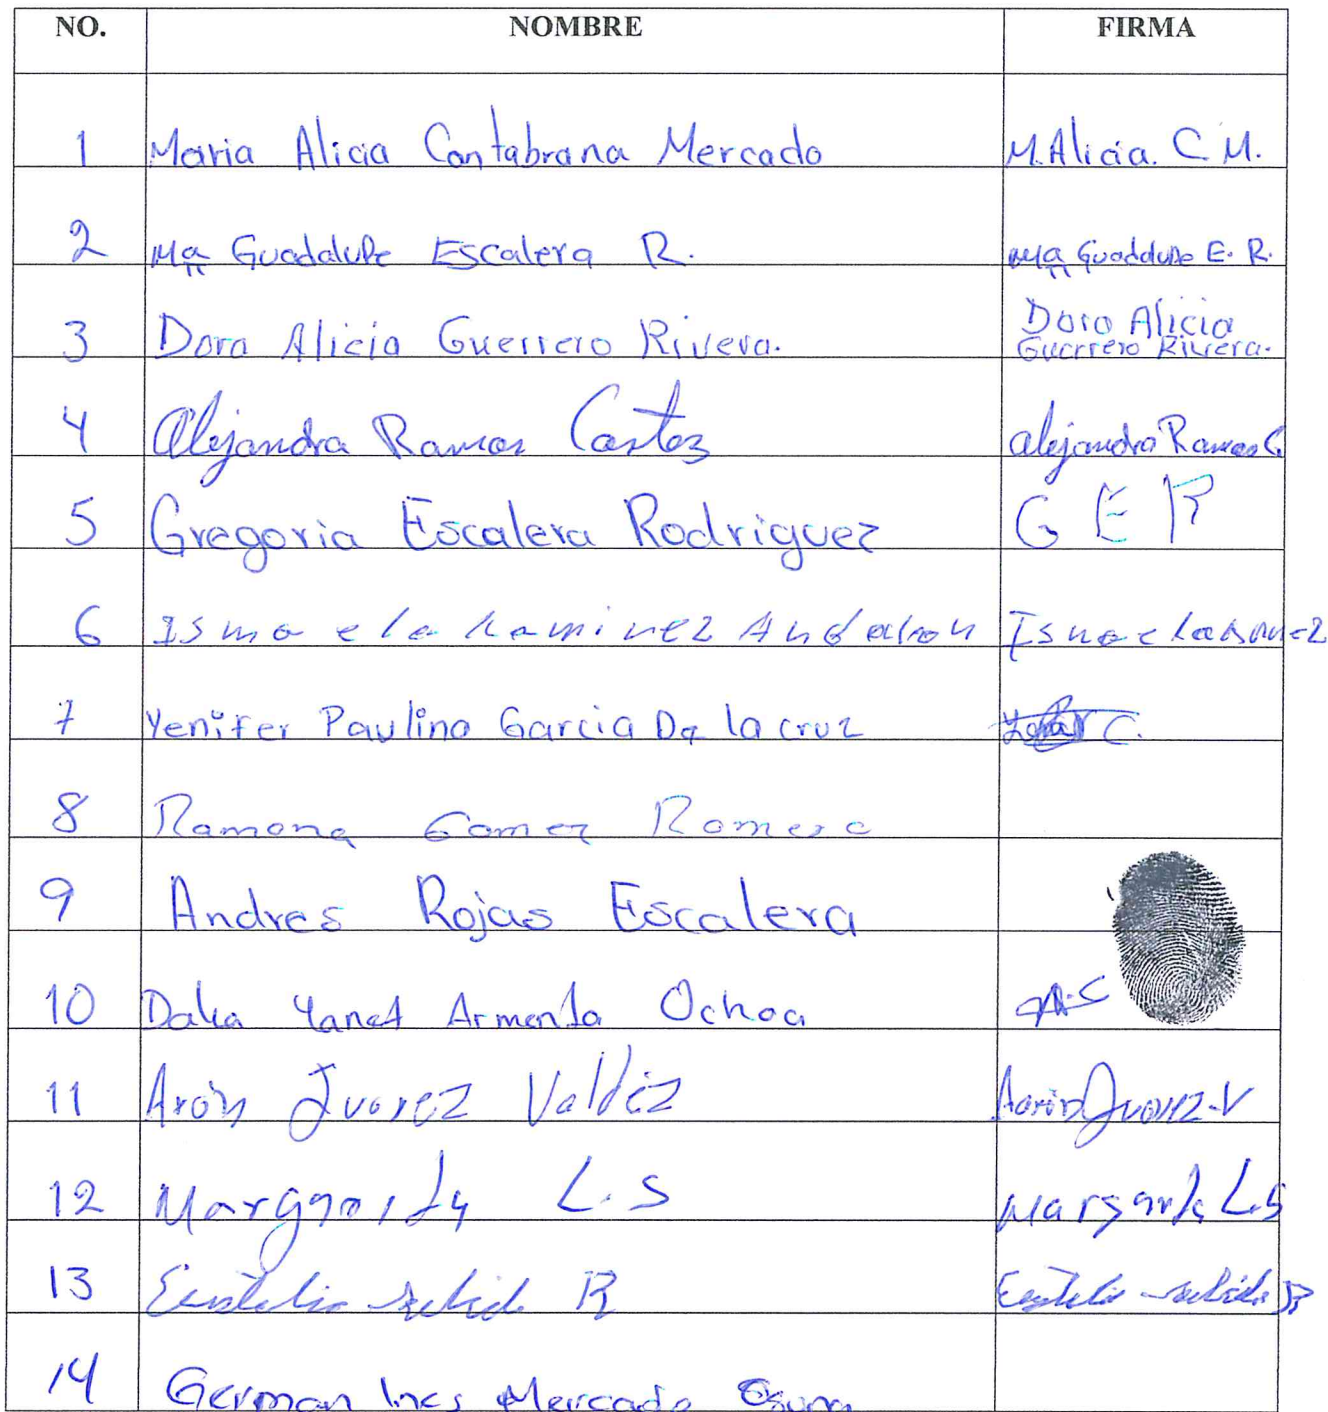 NO. NOMBRE FIRMA
1 Maria Alicia Cantabrana Mercado M. Alicia. C. M.
2 Ma Guadalupe Escalera R. Ma Guadalupe E. R.
3 Dora Alicia Guerrero Rivera. Dora Alicia
Guerrero Rivera.
4 Alejandra Ramos Alejandra Ramos C.
5 Gregoria Escalera Rodriguez G E R
6 Ismaela
7 Yenifer Paulina Garcia De la cruz
8 Ramona Gomez Romero
9 Andres Rojas Escalera
10 Dalia Yanet Armenta Ochoa
11 Arón Juarez Valdéz Juarez.V
12 Margarita L.S Margarita L.S
13 R
14 German Ines Mercado Osuna